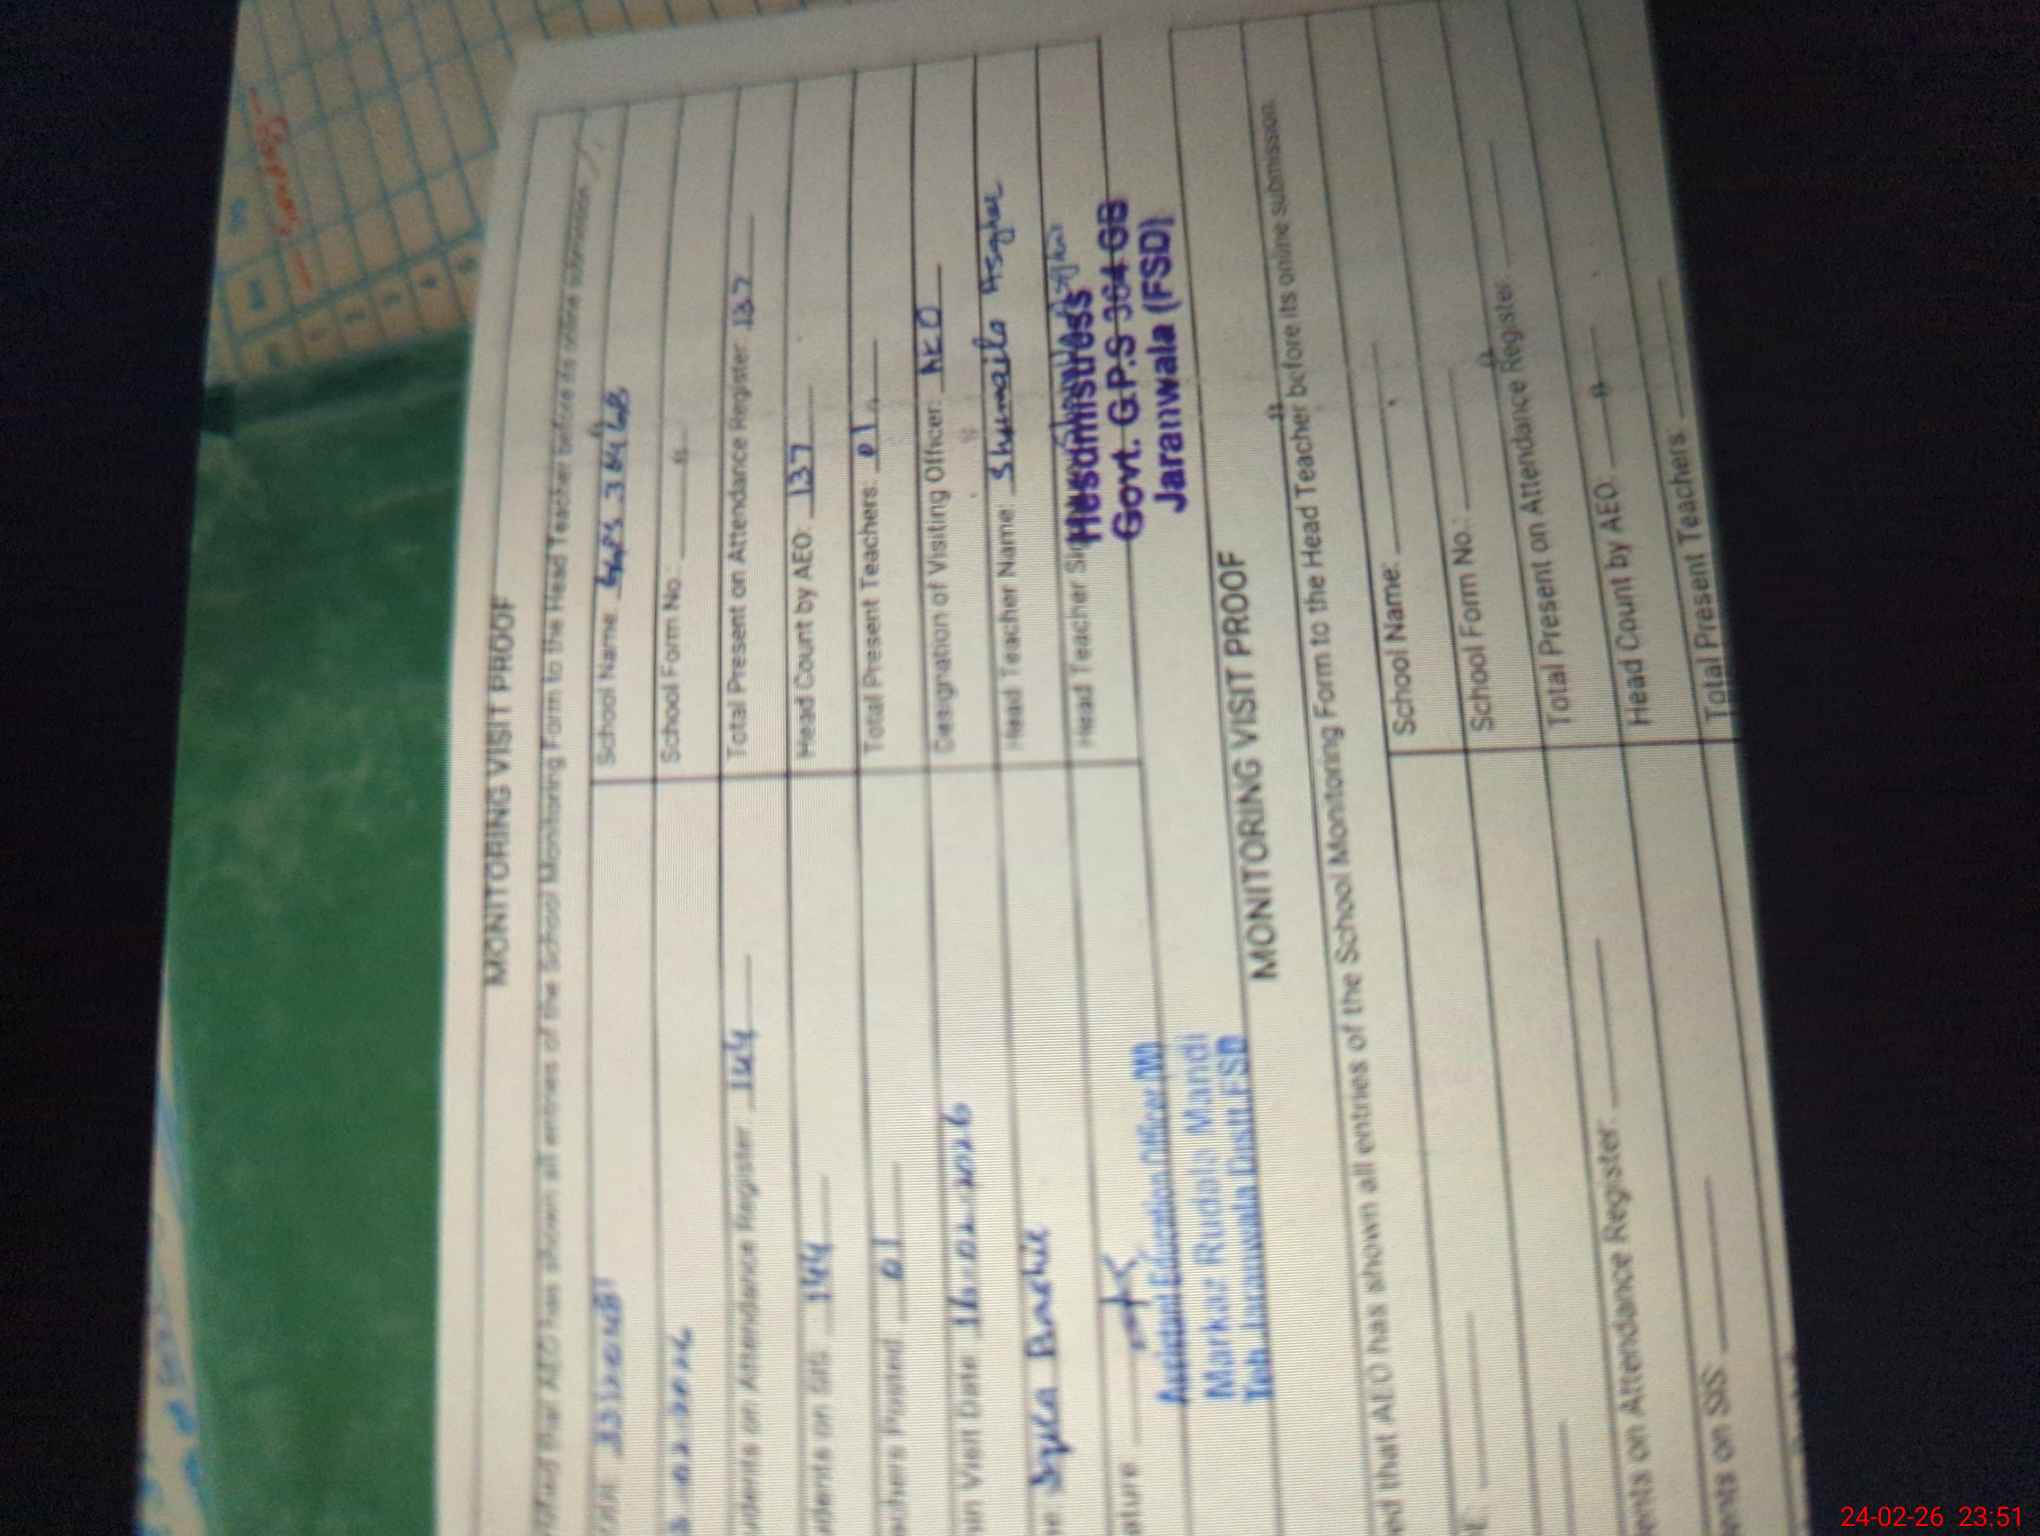 MONITORING VISIT PROOF
that AEO has shown all entries of the School Monitoring Form to the Head Teacher before its online submission
School Name: GGPS 364 GB
02.2026 School Form No.:
udents on Attendance Register: 144 Total Present on Attendance Register: 137
udents on SIS: 144 Head Count by AEO: 137
achers Posted: 01 Total Present Teachers: 01
Visit Date: 16.02.2026 Designation of Visiting Officer: AEO
Head Teacher Name: Shumaila Asghar
ature Head Teacher
Headmistress
Govt. G.P.S 364 GB
Jaranwala (FSD)
Assistant Education Officer (W)
Markaz Rudala Mandi
Teh. Jaranwala Distt. FSD
MONITORING VISIT PROOF
ed that AEO has shown all entries of the School Monitoring Form to the Head Teacher before its online submission.
School Name:
School Form No.:
Total Present on Attendance Register:
ents on Attendance Register: Head Count by AEO:
ents on SIS: Total Present Teachers:
24-02-26 23:51